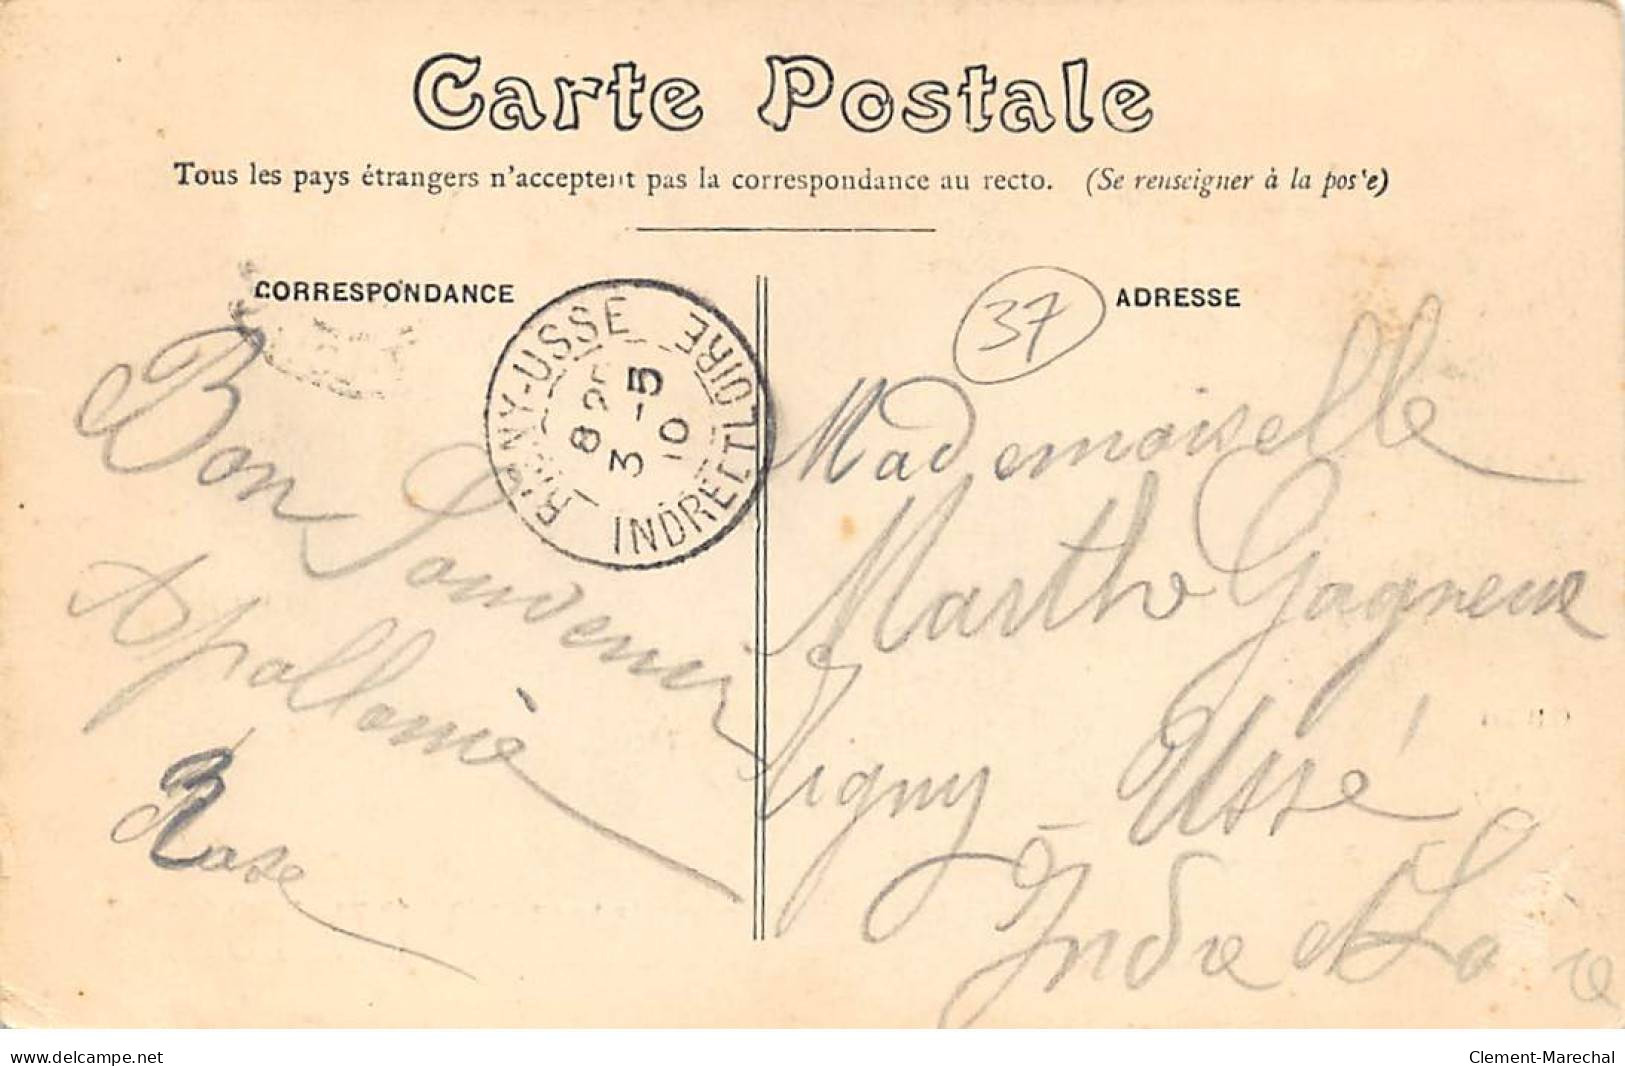 Carte Postale
Tous les pays étrangers n'acceptent pas la correspondance au recto. (Se renseigner à la pos'e)
CORRESPONDANCE
ADRESSE
37
RIGNY-USSÉ
INDRE ET LOIRE
8 25
3 -5
10
Bon Souvenir
Apollonie
Rose
Mademoiselle
Marthe Gagneux
Rigny - Ussé
Indre et Loire
www.delcampe.net
Clement-Marechal